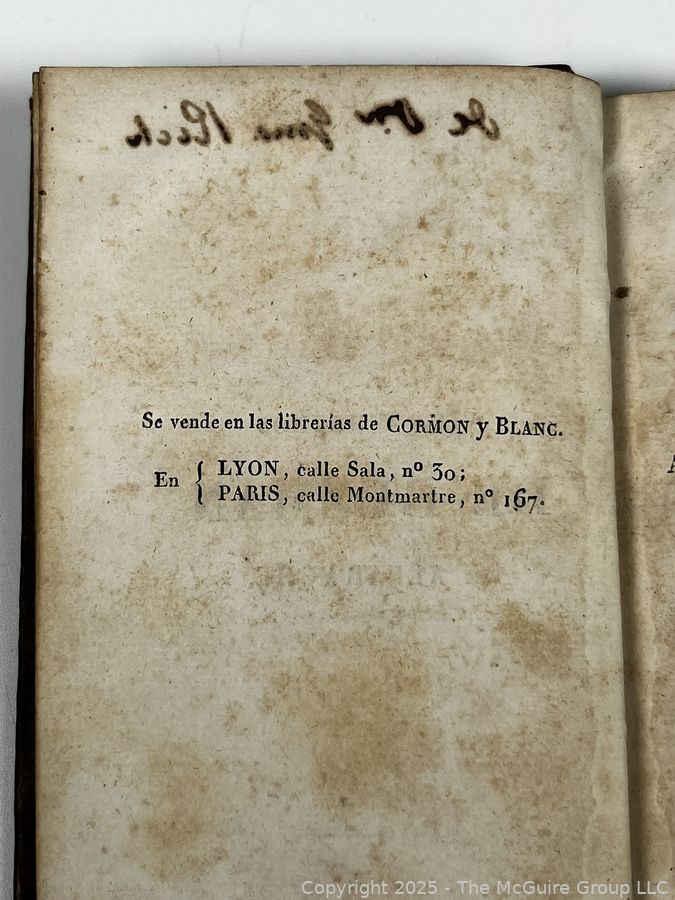 Se vende en las librerías de CORMON y BLANC.
En { LYON, calle Sala, nº 30;
PARIS, calle Montmartre, nº 167.
Copyright 2025 - The McGuire Group LLC